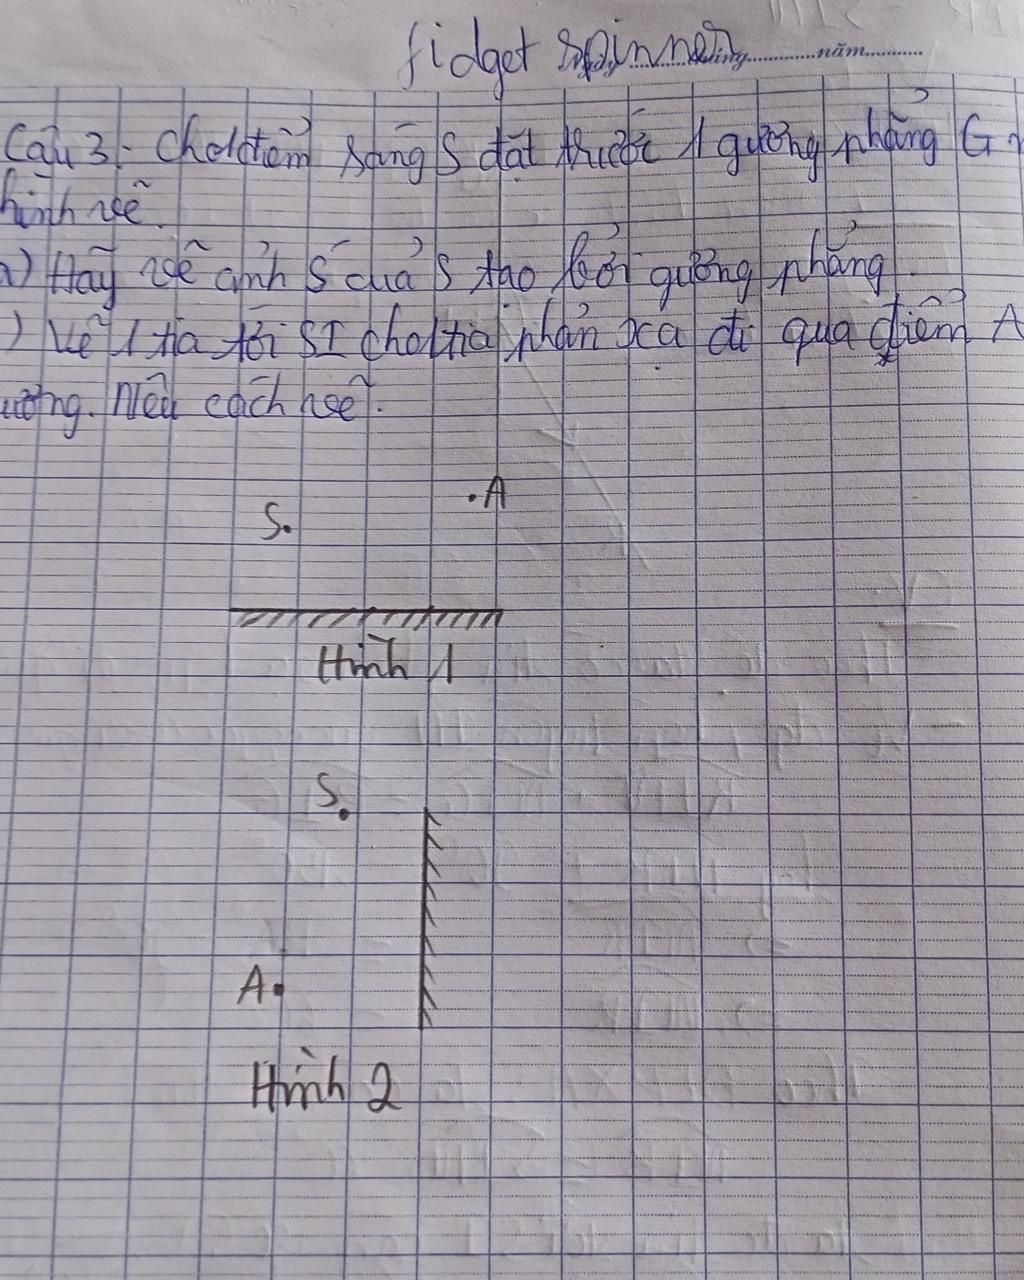 fidget spinner
năm
Câu 3: Cho 1 điểm sáng S đặt trước 1 gương phẳng G
hình vẽ
a) Hãy vẽ ảnh S' của S tạo bởi gương phẳng.
) Vẽ 1 tia tới SI cho 1 tia phản xạ đi qua điểm A
ương. Nêu cách vẽ.
S
A
Hình 1
S
A
Hình 2